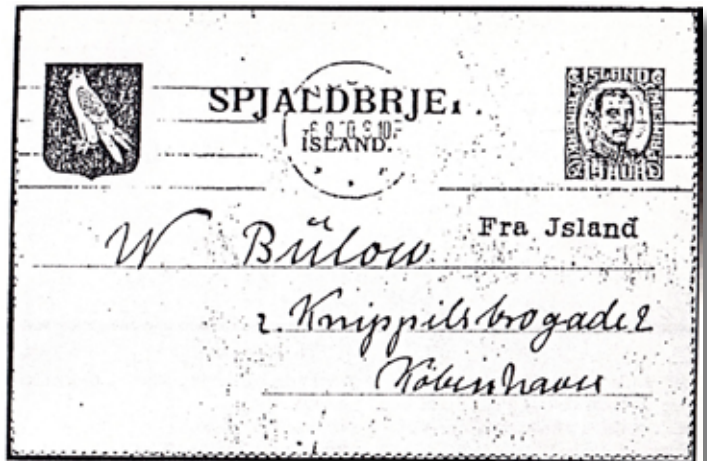 SPJALDBRJE
ISLAND.
ISLAND
15 AUR
Fra Jsland
W Bülow
2. Knippilsbrogade 2
Köbenhavn